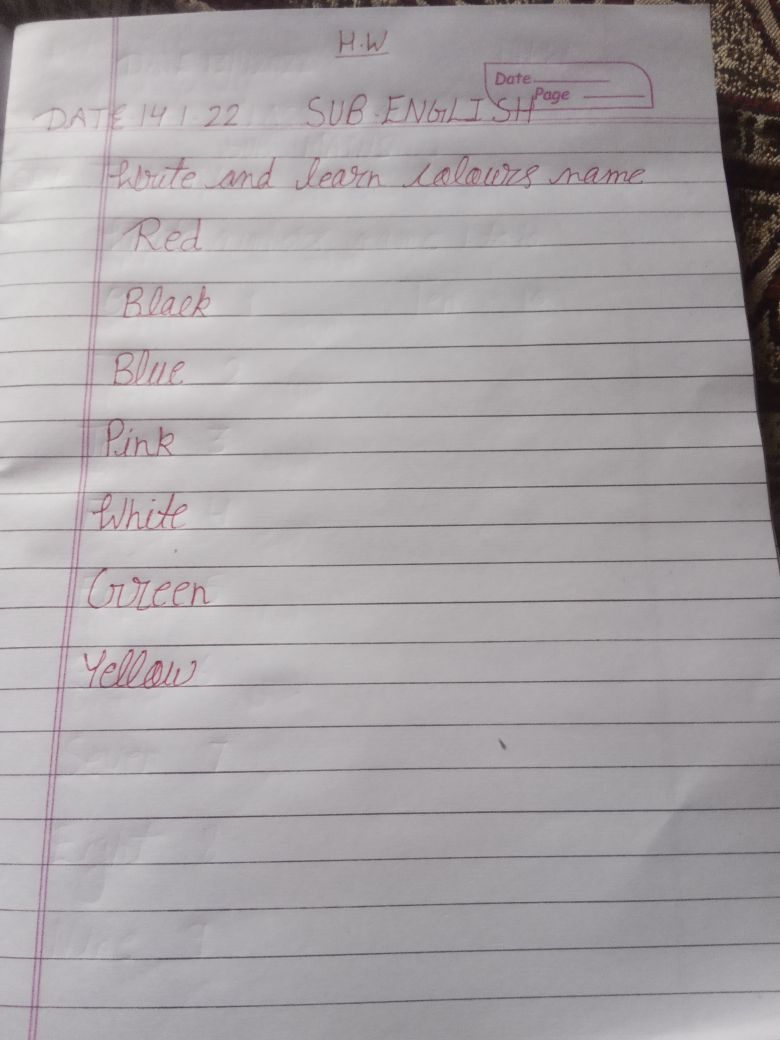 H.W
Date
Page
DATE 14 1 22 SUB.ENGLISH
Write and learn colours name
Red
Black
Blue
Pink
White
Green
Yellow